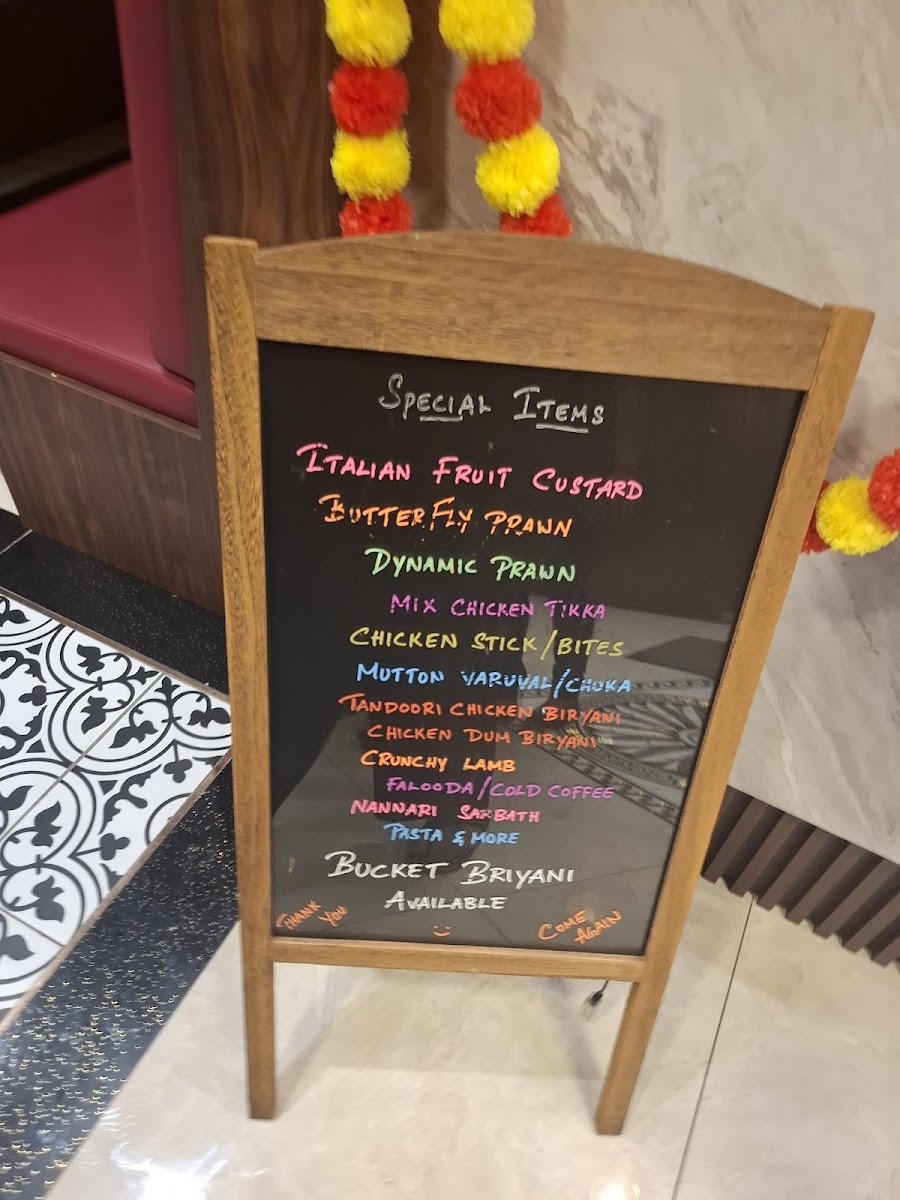 Special Items
Italian Fruit Custard
Butterfly Prawn
Dynamic Prawn
Mix Chicken Tikka
Chicken Stick/Bites
Mutton Varuval/Chuka
Tandoori Chicken Biryani
Chicken Dum Biryani
Crunchy Lamb
Falooda/Cold Coffee
Nannari Sarbath
Pasta & More
Bucket Briyani
Available
Thank You
Come Again